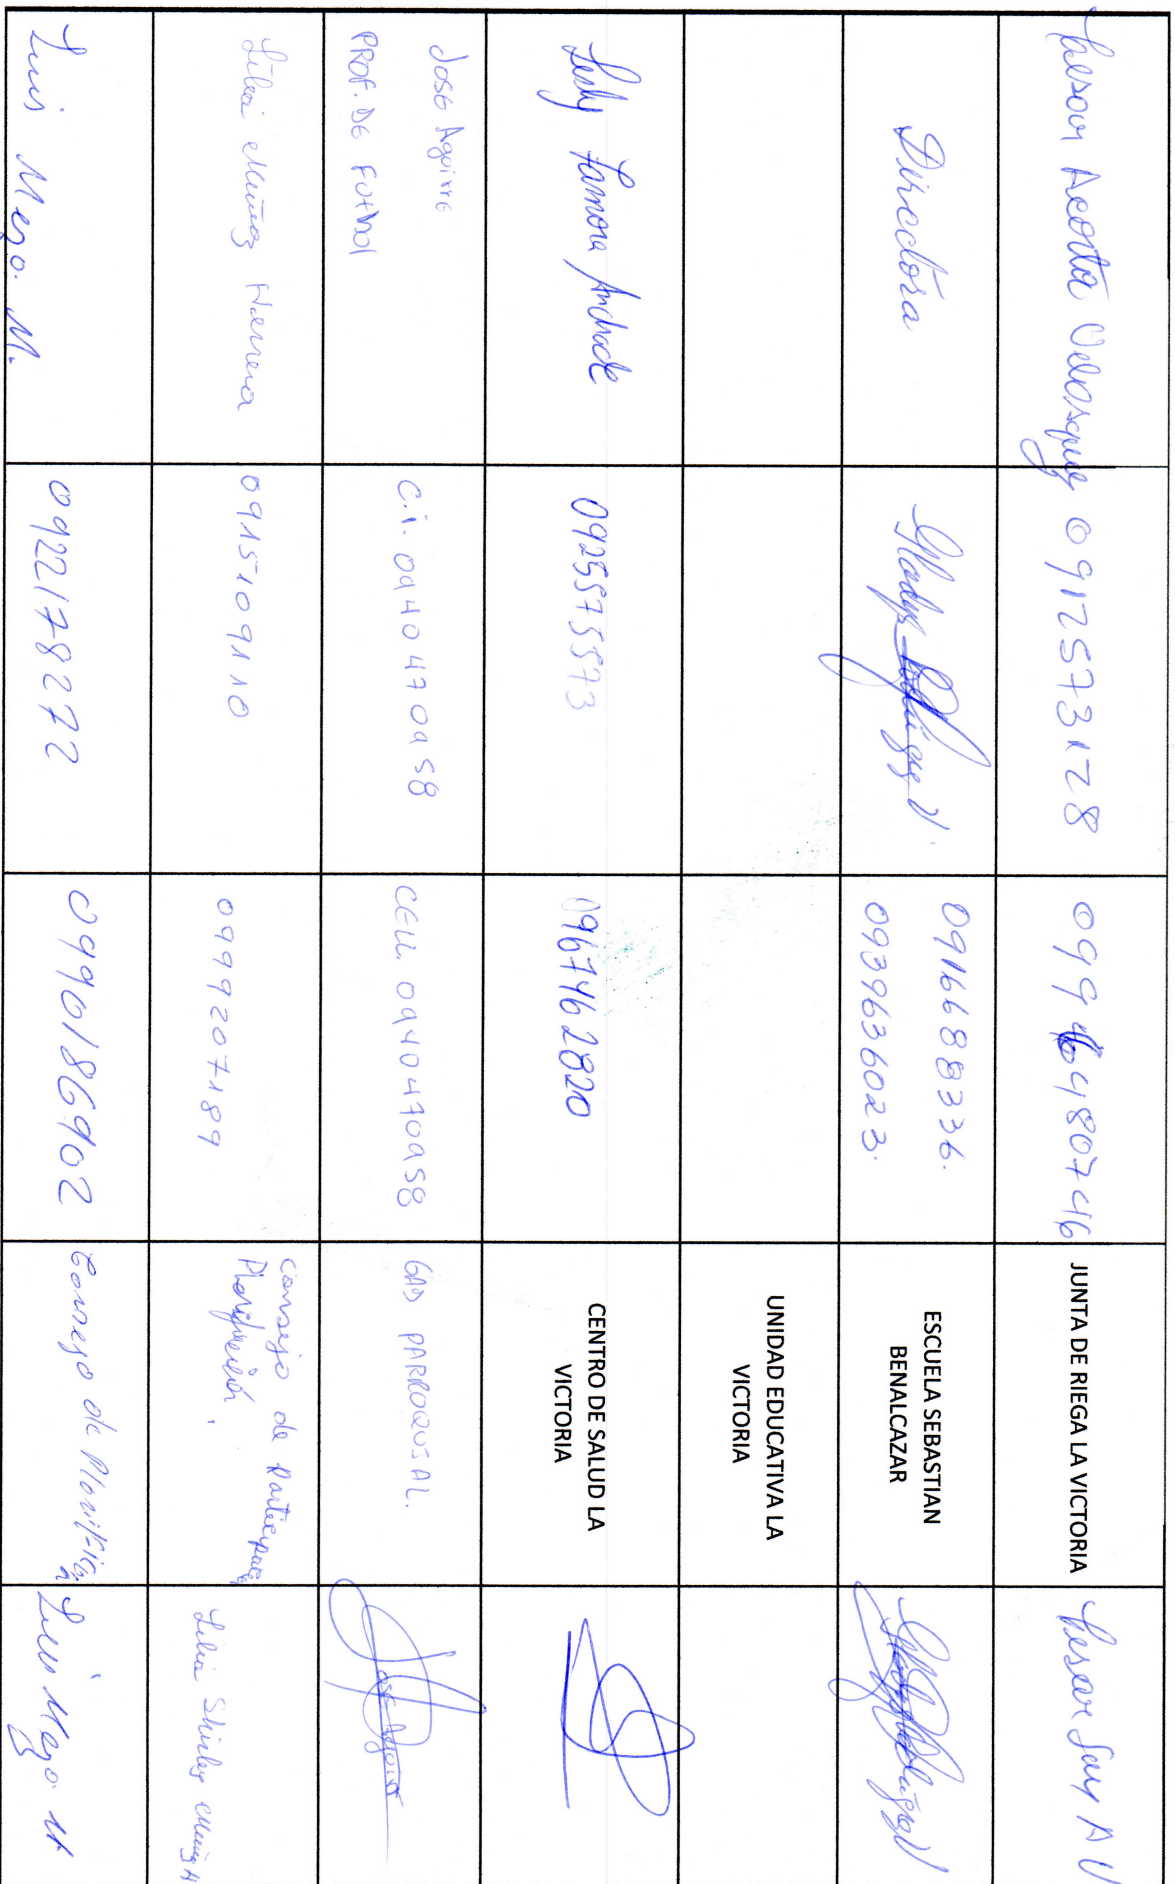 Cesar Acosta Velasquez
0912573128
0994804746
JUNTA DE RIEGA LA VICTORIA
Cesar A V
Directora
Gladys
0916688336.
0939636023.
ESCUELA SEBASTIAN
BENALCAZAR
UNIDAD EDUCATIVA LA
VICTORIA
Lesly Zamora Andrade
0925575573
0967462820
CENTRO DE SALUD LA
VICTORIA
Jose Aguirre
PROF. DE FUTBOL
C.I. 0940470958
CELL 0940470958
GAD PARROQUIAL.
Jose Aguirre
Lilia Muñoz Herrera
0915109110
0999207189
Consejo de Participac
Planificación.
Lilia Shirley Muñoz H
Luis Mezo. M.
0922178272
0990186902
Consejo de Planificación
Luis Mezo M